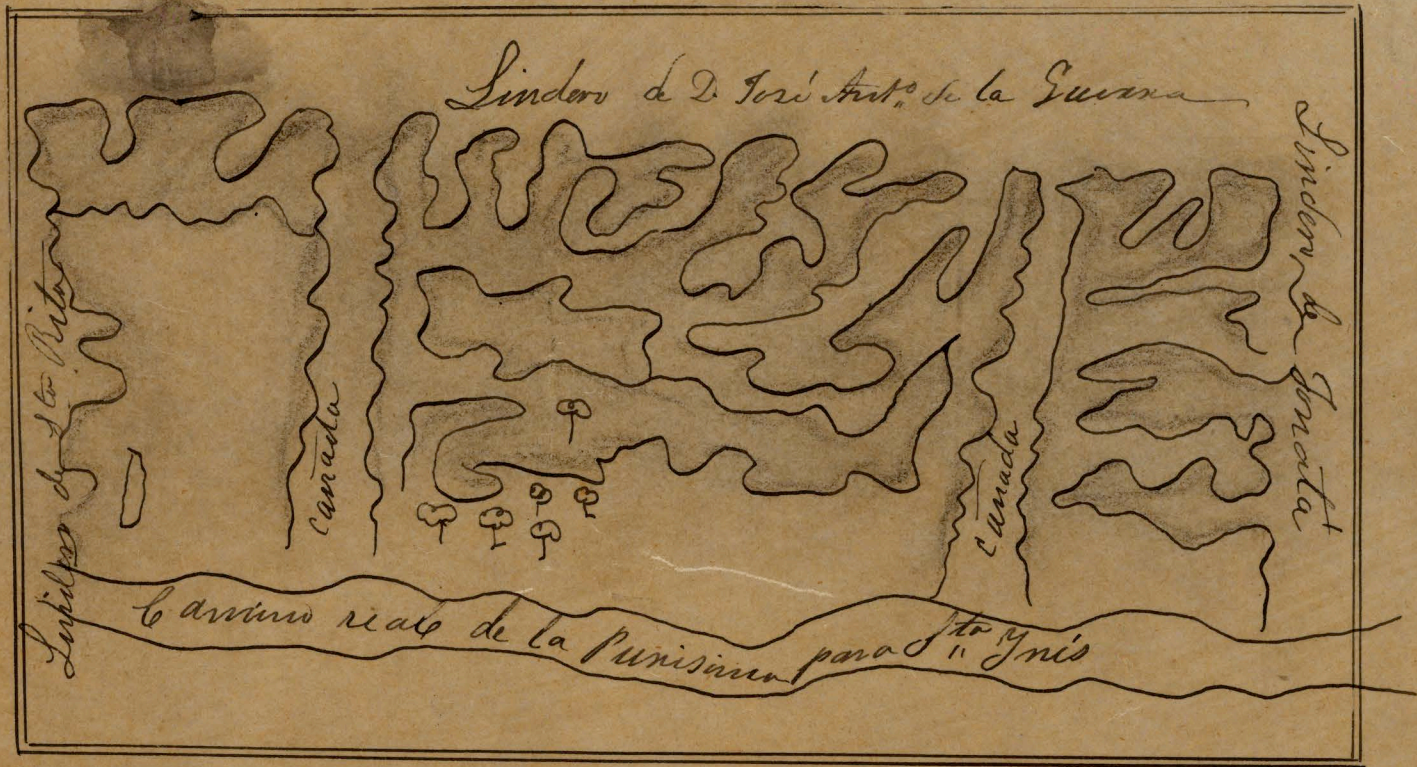 Lindero de D. José Anto. de la Guerra
Lindero de Jonata
de Sta Rita
Cañada
Cañada
Camino real de la Purisima para Sta Ynés